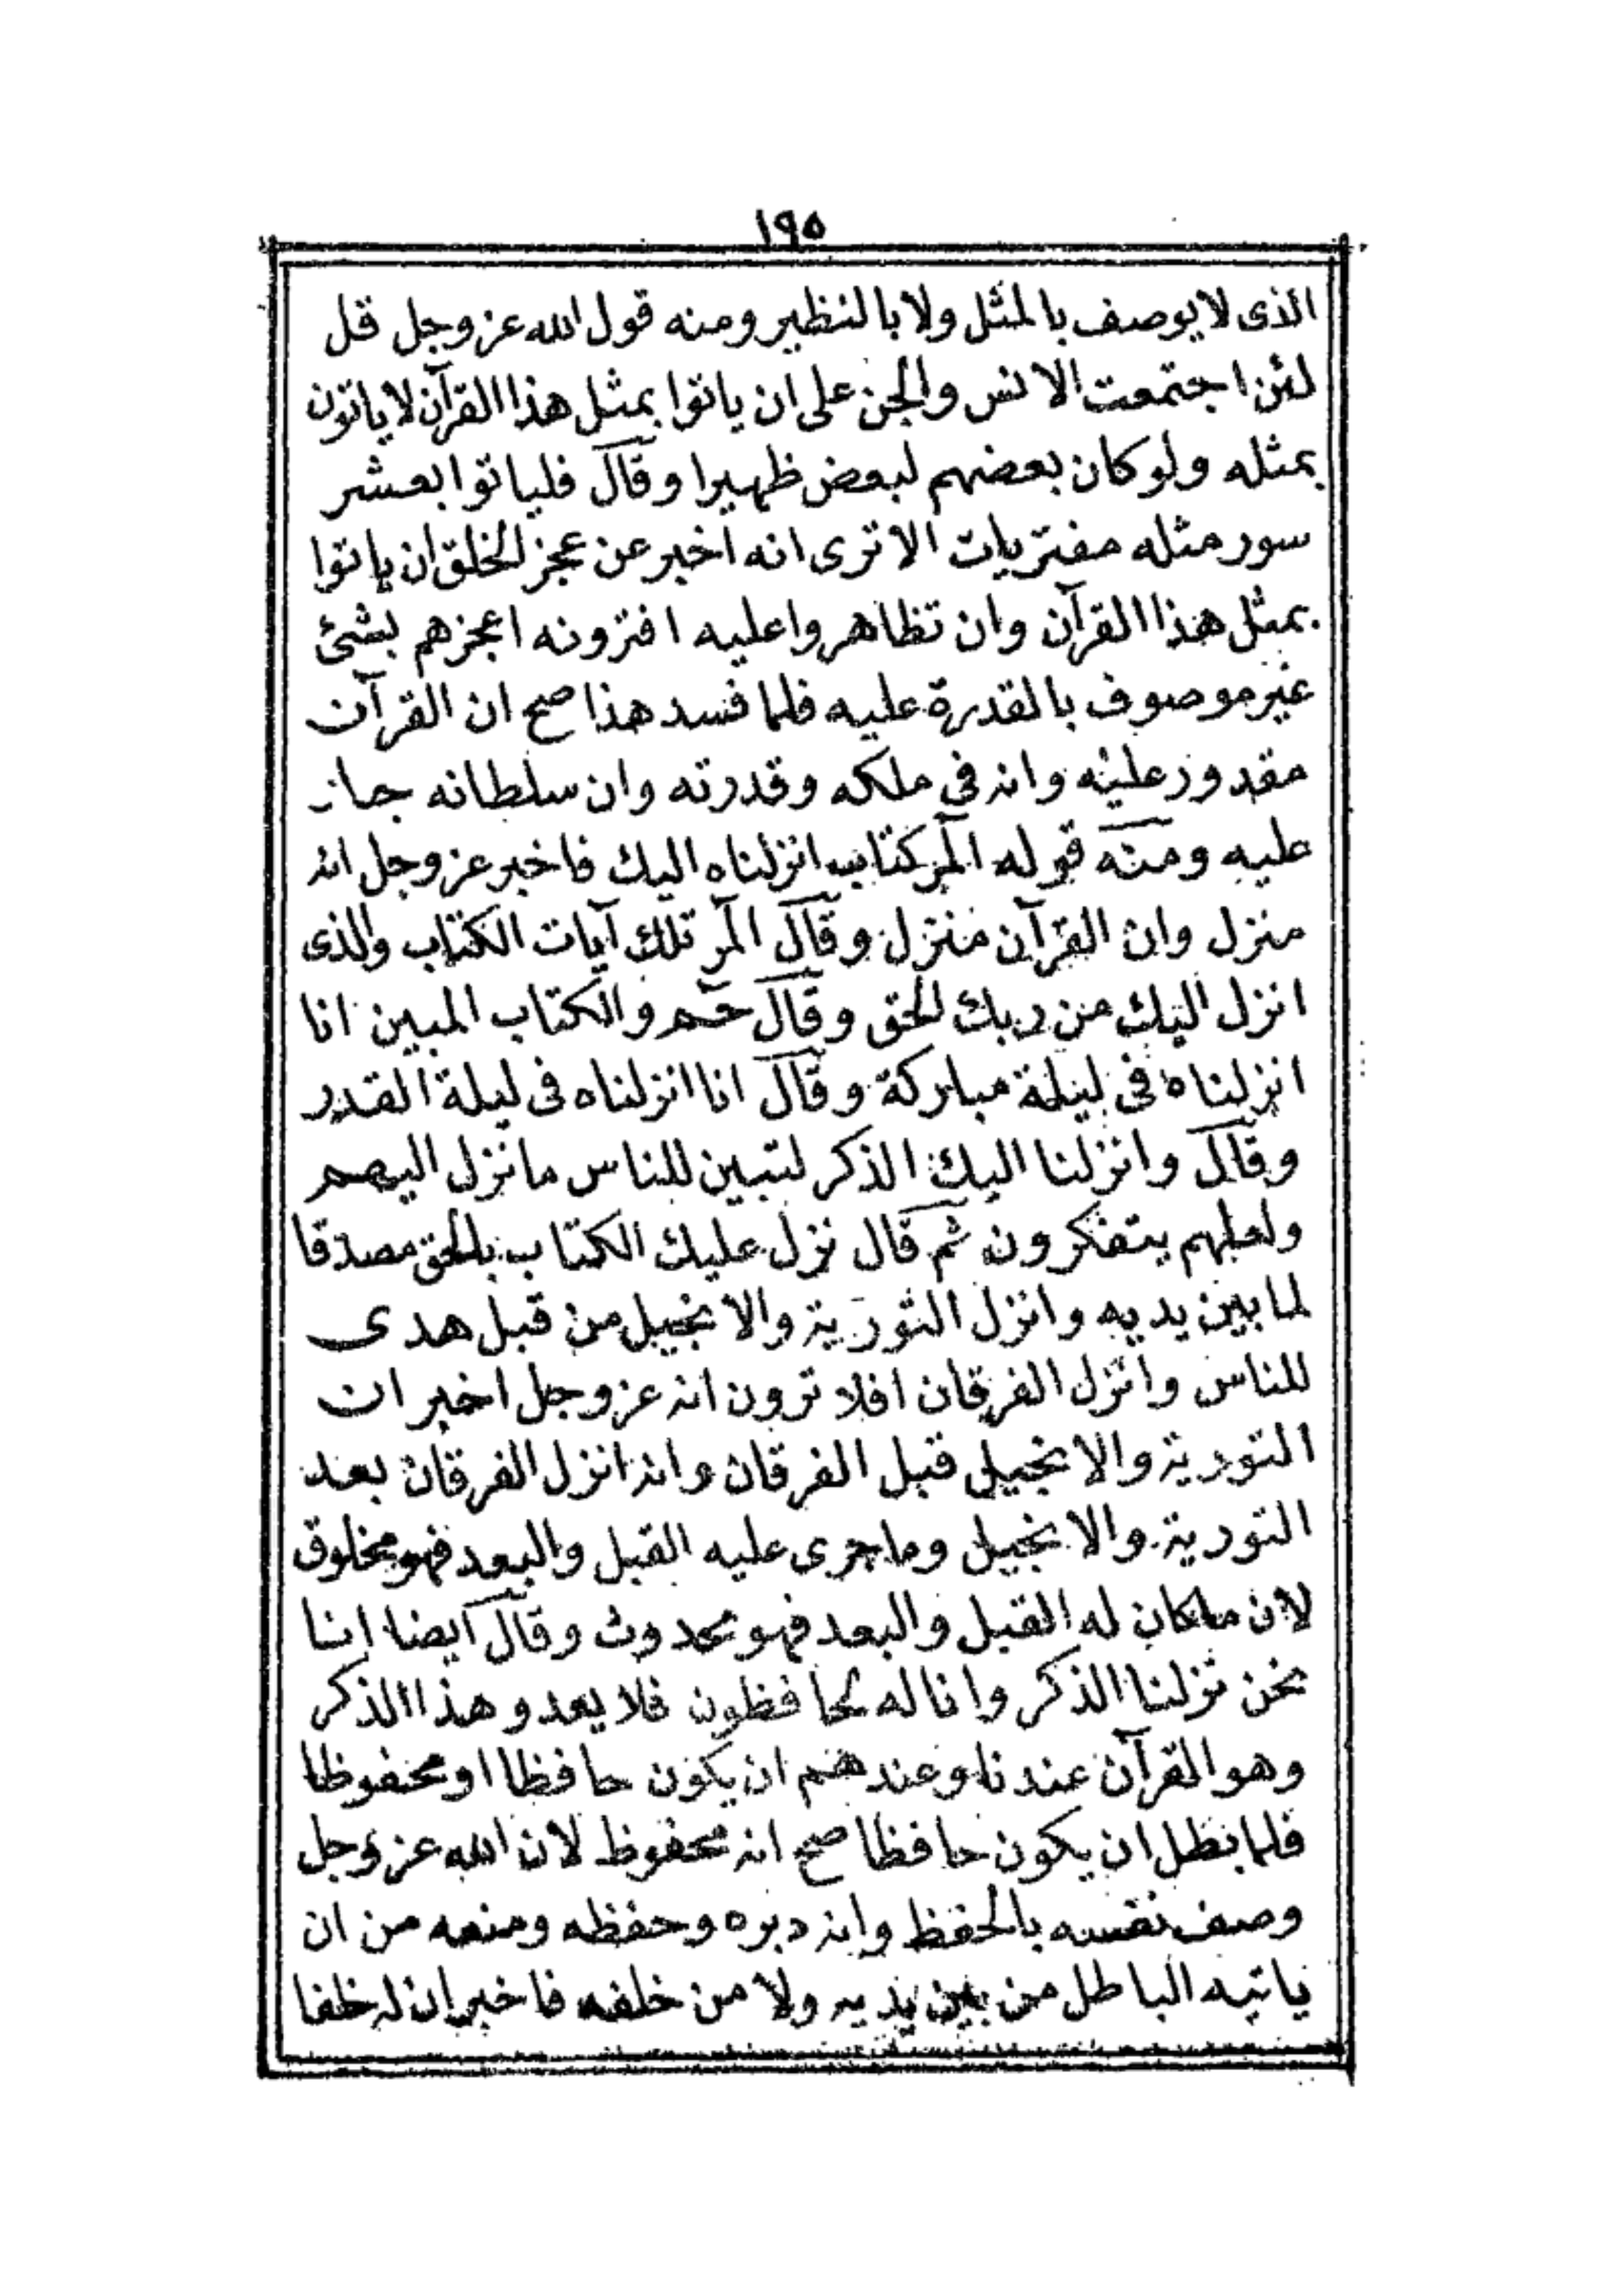 ١٩٥
الذى لا يوصف بالمثل ولا بالنظير ومنه قول الله عز وجل قل
لئن اجتمعت الانس والجن على ان ياتوا بمثل هذا القرآن لا ياتون
بمثله ولو كان بعضهم لبعض ظهيرا وقال فلياتوا بعشر
سور مثله مفتريات الا ترى انه اخبر عن عجز الخلق ان ياتوا
بمثل هذا القرآن وان تظاهروا عليه افترونه اعجزهم بشئ
غير موصوف بالقدرة عليه فلما فسد هذا صح ان القرآن
مقدور عليه وانه في ملكه وقدرته وان سلطانه جاز
عليه ومنه قوله الر كتاب انزلناه اليك فاخبر عز وجل انه
منزل وان القرآن منزل وقال المر تلك آيات الكتاب والذى
انزل اليك من ربك الحق وقال حم والكتاب المبين انا
انزلناه فى ليلة مباركة وقال انا انزلناه فى ليلة القدر
وقال وانزلنا اليك الذكر لتبين للناس ما نزل اليهم
ولعلهم يتفكرون ثم قال نزل عليك الكتاب بالحق مصدقا
لما بين يديه وانزل التورية والانجيل من قبل هدى
للناس وانزل الفرقان افلا ترون انه عز وجل اخبر ان
التورية والانجيل قبل الفرقان وانه انزل الفرقان بعد
التورية والانجيل وما جرى عليه القبل والبعد فهو مخلوق
لان ما كان له القبل والبعد فهو محدوث وقال ايضا انا
نحن نزلنا الذكر وانا له لحافظون فلا يعدو هذا الذكر
وهو القرآن عندنا وعندهم ان يكون حافظا او محفوظا
فلما بطل ان يكون حافظا صح انه محفوظ لان الله عز وجل
وصف نفسه بالحفظ وانه دبره وحفظه ومنعه من ان
ياتيه الباطل من بين يديه ولا من خلفه فاخبر ان له خلفا